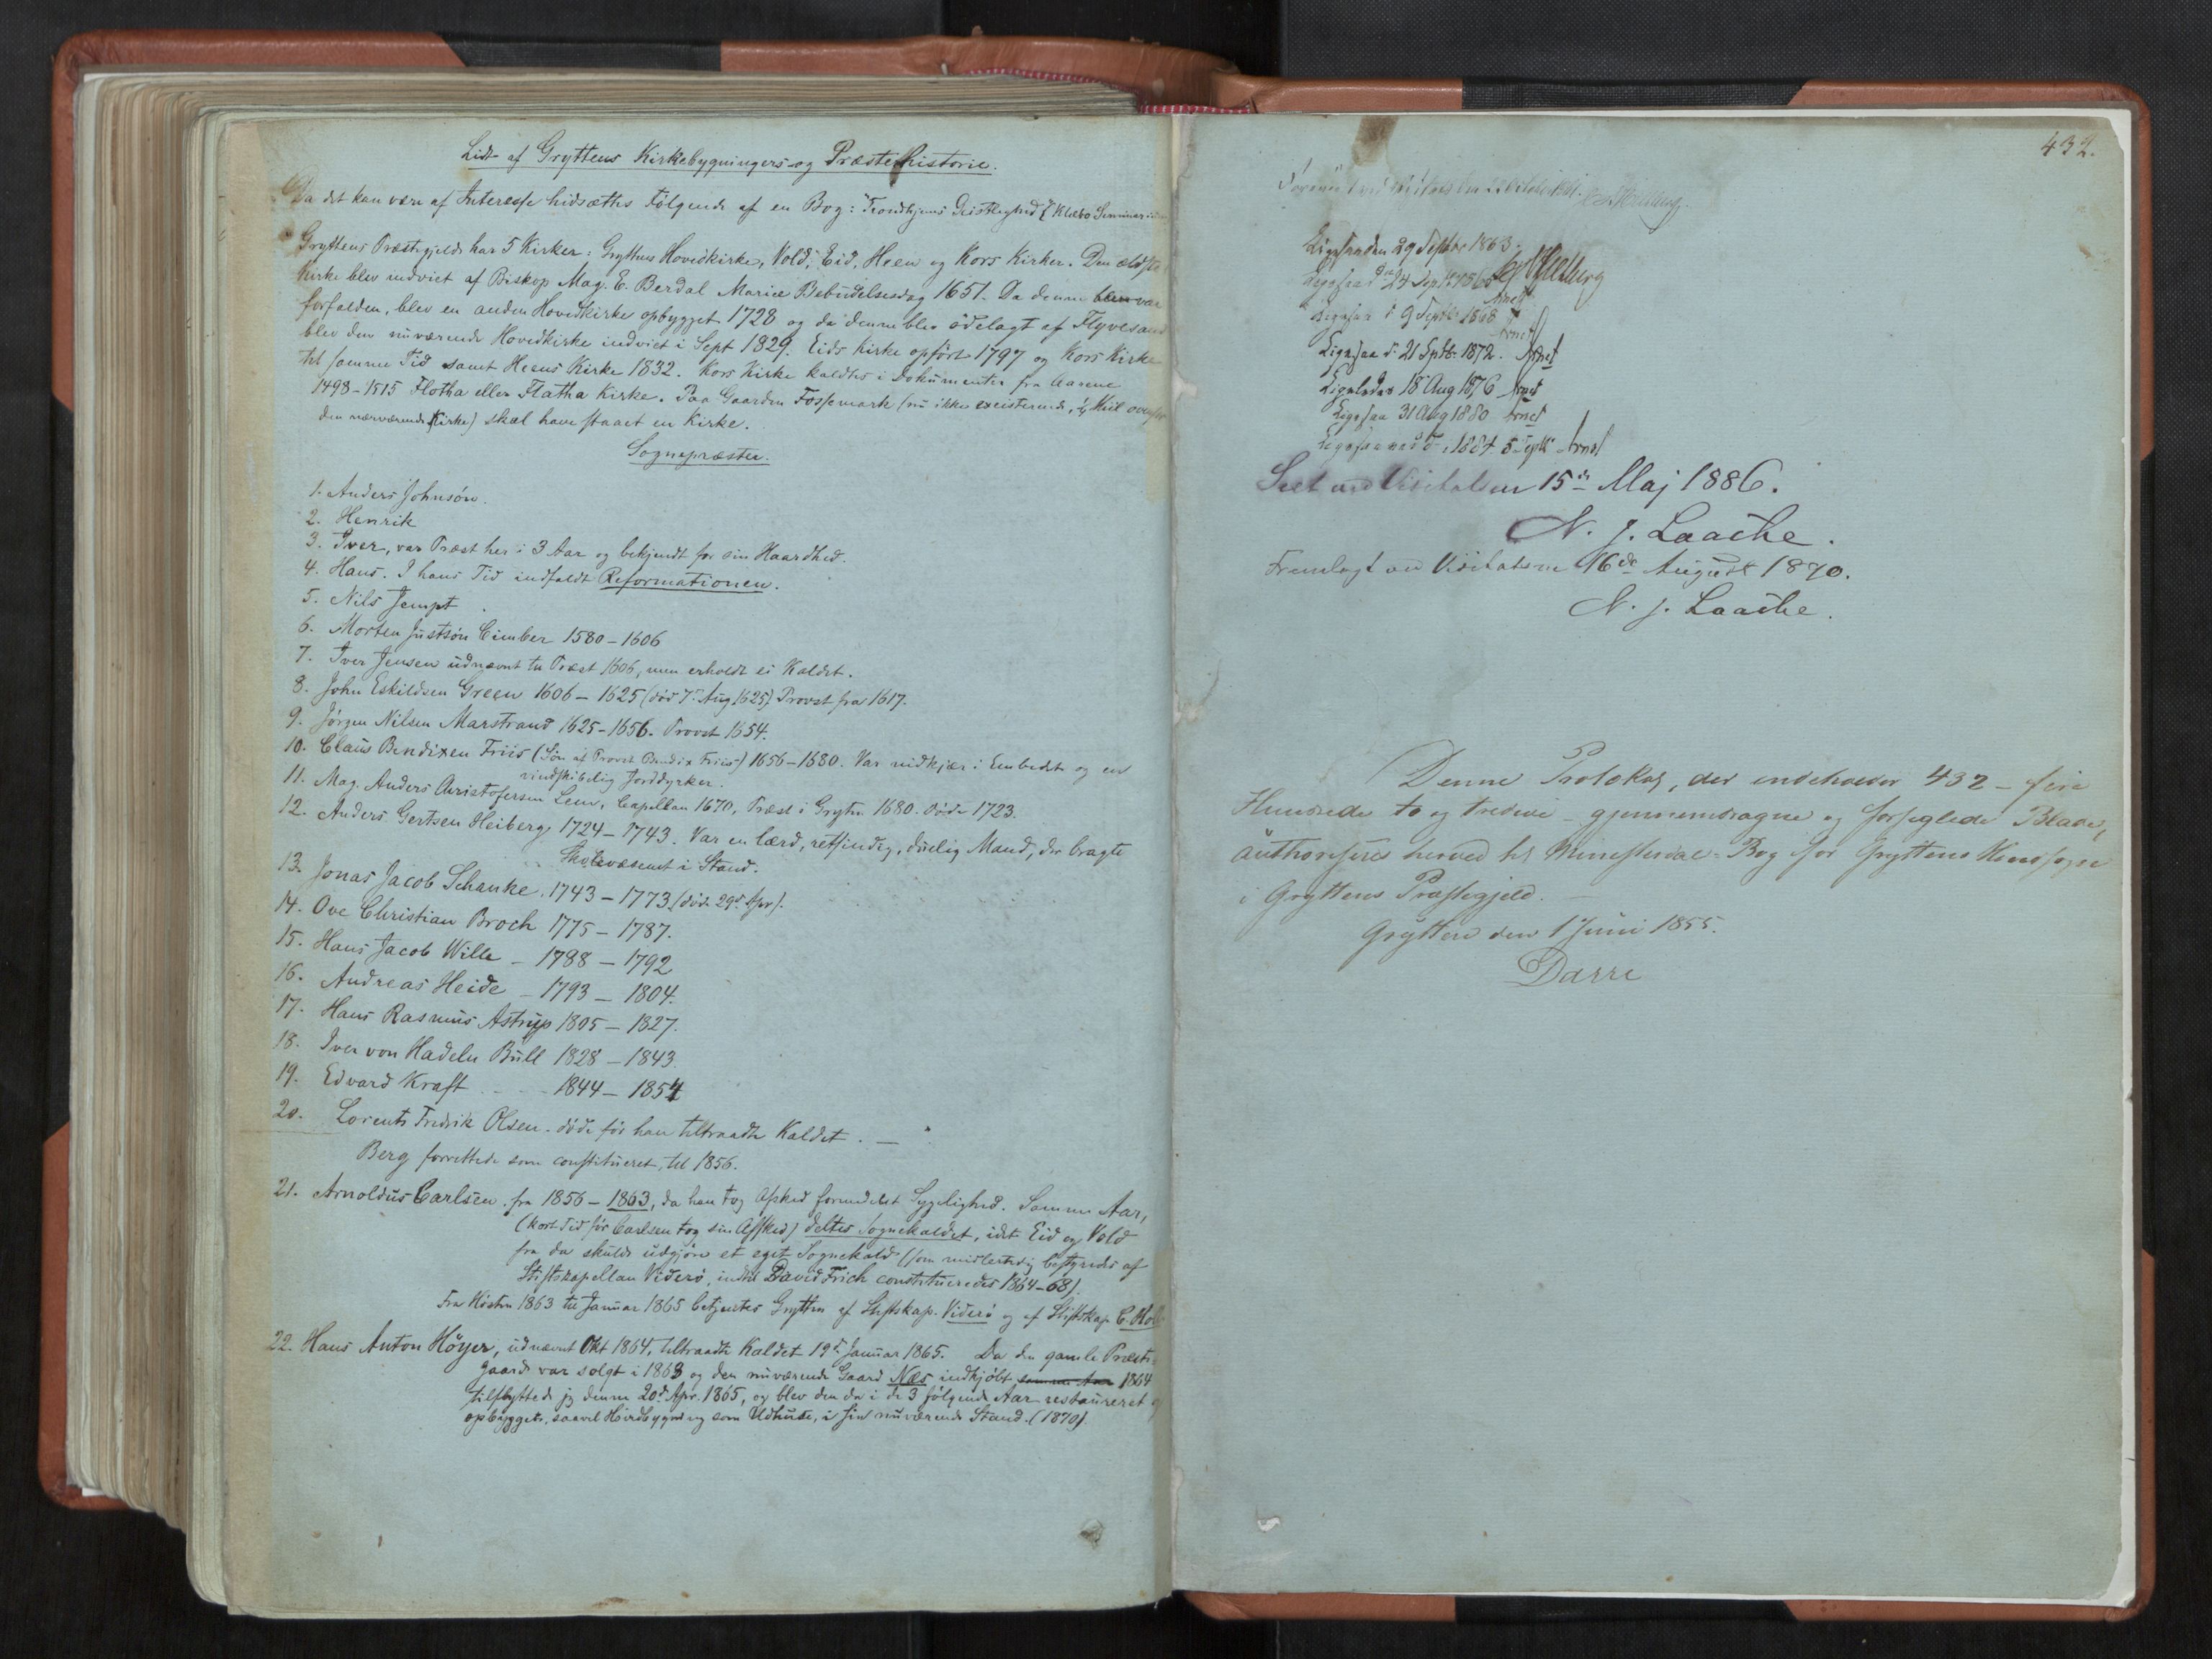 Lidt af Gryttens Kirkebygningers og Præstehistorie.
Da det kan være af Interesse hidsættes følgende af en Bog: Trondhjems Geistlighed
Gryttens Præstegjeld har 5 Kirker: Gryttens Hovedkirke, Vold, Eid, Heen og Kors Kirker. Den ældste
Kirke blev indviet af Biskop Mag. E. Berdal Mariæ Bebudelsesdag 1651. Da denne blev var
forfalden, blev en anden Hovedkirke opbygget 1728 og da denne blev ödelagt af Flyvesand
blev den nuværende Hovedkirke indviet i Sept 1829. Eids Kirke opfört 1797 og Kors Kirke
til samme Tid samt Heens Kirke 1832. Kors Kirke kaldtes i Dokumenter fra Aarene
1498-1515 Flotha eller Flatha Kirke. Paa Gaarden Fossemark (nu ikke existerende, ¼ Mil ovenfor
den nærværende Kirke) skal have staaet en Kirke.
Sognepræster.
1. Anders Johnsön.
2. Henrik
3. Iver, var Præst her i 3 Aar og bekjendt for sin Haardhed.
4. Hans. I hans Tid indfaldt Reformationen.
5. Nils Jempt
6. Morten Justsön Cimber 1580-1606
7. Iver Jensen udnævnt til Præst 1606, men erholdt ei Kaldet.
8. John Eskildsen Green 1606-1625 (död 7de Aug 1625) Provst fra 1617.
9. Jörgen Nilsen Marstrand 1625-1656. Provst 1654.
10. Claus Bendixen Friis (Sön af Provst Bendix Friis) 1656-1680. Var nidkjær i Embedet og en
vindskibelig Jorddyrker.
11. Mag. Anders Christofersen Lem, Capellan 1670, Præst i Grytten 1680. döde 1723.
12. Anders Gertsen Heiberg 1724-1743. Var en lærd, retsindig, duelig Mand, der bragte
Skolevæsenet i Stand.
13. Jonas Jacob Schanke. 1743-1773 (död 29de Apr).
14. Ove Christian Broch 1775-1787.
15. Hans Jacob Wille - 1788-1792
16. Andreas Heide - 1793-1804.
17. Hans Rasmus Astrup 1805-1827.
18. Iver von Hadeln Bull 1828-1843
19. Edvard Kraft - - 1844-1854
20. Lorents Fredrik Olsen. döde för han tiltraadte Kaldet. -
Berg forrettede som constitueret, til 1856.
21. Arnoldus Carlsen fra 1856-1863, da han tog Afsked formedelst Sygelighed. Samme Aar,
(kort Tid för Carlsen tog sin Afsked) deltes Sognekaldet, idet Eid og Vold
fra da skulde udgjöre et eget Sognekald (som midlertidig bestyredes af
Stiftskapellan Viderö, indtil David Frich constitueredes 1864-68).
Fra Hösten 1863 til Januar 1865 betjentes Grytten af Stiftskap. Viderö og af Stiftskap. C.
22. Hans Anton Höyer, udnævnt Okt 1864, tiltraadte Kaldet 19de Januar 1865. Da den gamle Præste-
gaard var solgt i 1863 og den nuværende Gaard Næs indkjöbt samme Aar 1864
tilflyttede jeg denne 20de Apr. 1865, og blev den da i de 3 fölgende Aar restaureret og
opbygget, saavel Hovedbygning som Udhuse, i sin nuværende Stand. (1870)
432.
Ligesaa den 29 Septbr 1863.
Ligesaa d 24 Sept 1865
Ligesaa d 9 Septbr 1868 Arnet
Ligesaa d. 21 Sptb. 1872. Arnet
Ligeledes 18 Aug 1876 Arnet
Ligesaa 31 Aug 1880 Arnet
1884 5 Sept Arnet
Seet ved Visitatsen 15de Maj 1886.
N. J. Laache.
Fremlagt ved Visitatsen 16de August 1890.
N. J. Laache.
Denne Protokol, der indeholder 432 - fire
Hundrede to og tredive - gjennemdragne og forseglede Blade,
authoriseres herved til Ministerial-Bog for Gryttens Hovedsogn
i Gryttens Præstegjeld. -
Grytten den 1 Juni 1855.
Darre